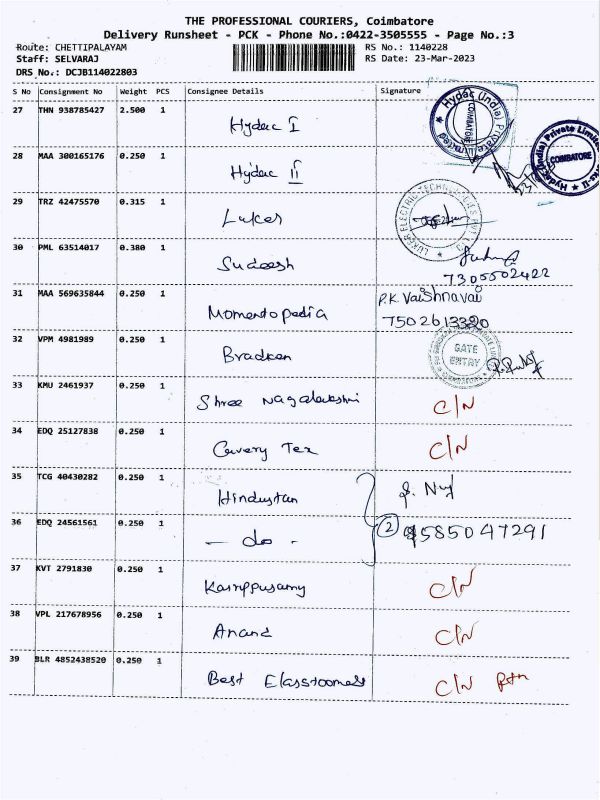 THE PROFESSIONAL COURIERS, Coimbatore
Delivery Runsheet - PCK - Phone No.:0422-3505555 - Page No.:3
Route: CHETTIPALAYAM RS No.: 1140228
Staff: SELVARAJ RS Date: 23-Mar-2023
DRS No.: DCJB114022803
S No Consignment No Weight PCS Consignee Details Signature
27 THN 938785427 2.500 1 Hydac I
Hydac (India) Private Limited
COIMBATORE
28 MAA 300165176 0.250 1 Hydac II
Hydac (India) Private Limited
COIMBATORE
29 TRZ 42475570 0.315 1 Luker
LUKER ELECTRIC TECHNOLOGIES PVT LTD
30 PML 63514017 0.380 1 Sudeesh
7305502422
31 MAA 569635844 0.250 1 Momentopedia P.K. Vaishnavai
7502613320
32 VPM 4981989 0.250 1 Bradken
GATE
ENTRY
33 KMU 2461937 0.250 1 Shree Nagalakshmi C/N
34 EDQ 25127838 0.250 1 Cavery Tex C/N
35 TCG 40430282 0.250 1 Hindustan
36 EDQ 24561561 0.250 1 - do - 2 9585047291
37 KVT 2791830 0.250 1 Karuppusamy C/N
38 VPL 217678956 0.250 1 Anand C/N
39 BLR 4852438520 0.250 1 Best Elasstoomess C/N Rtn